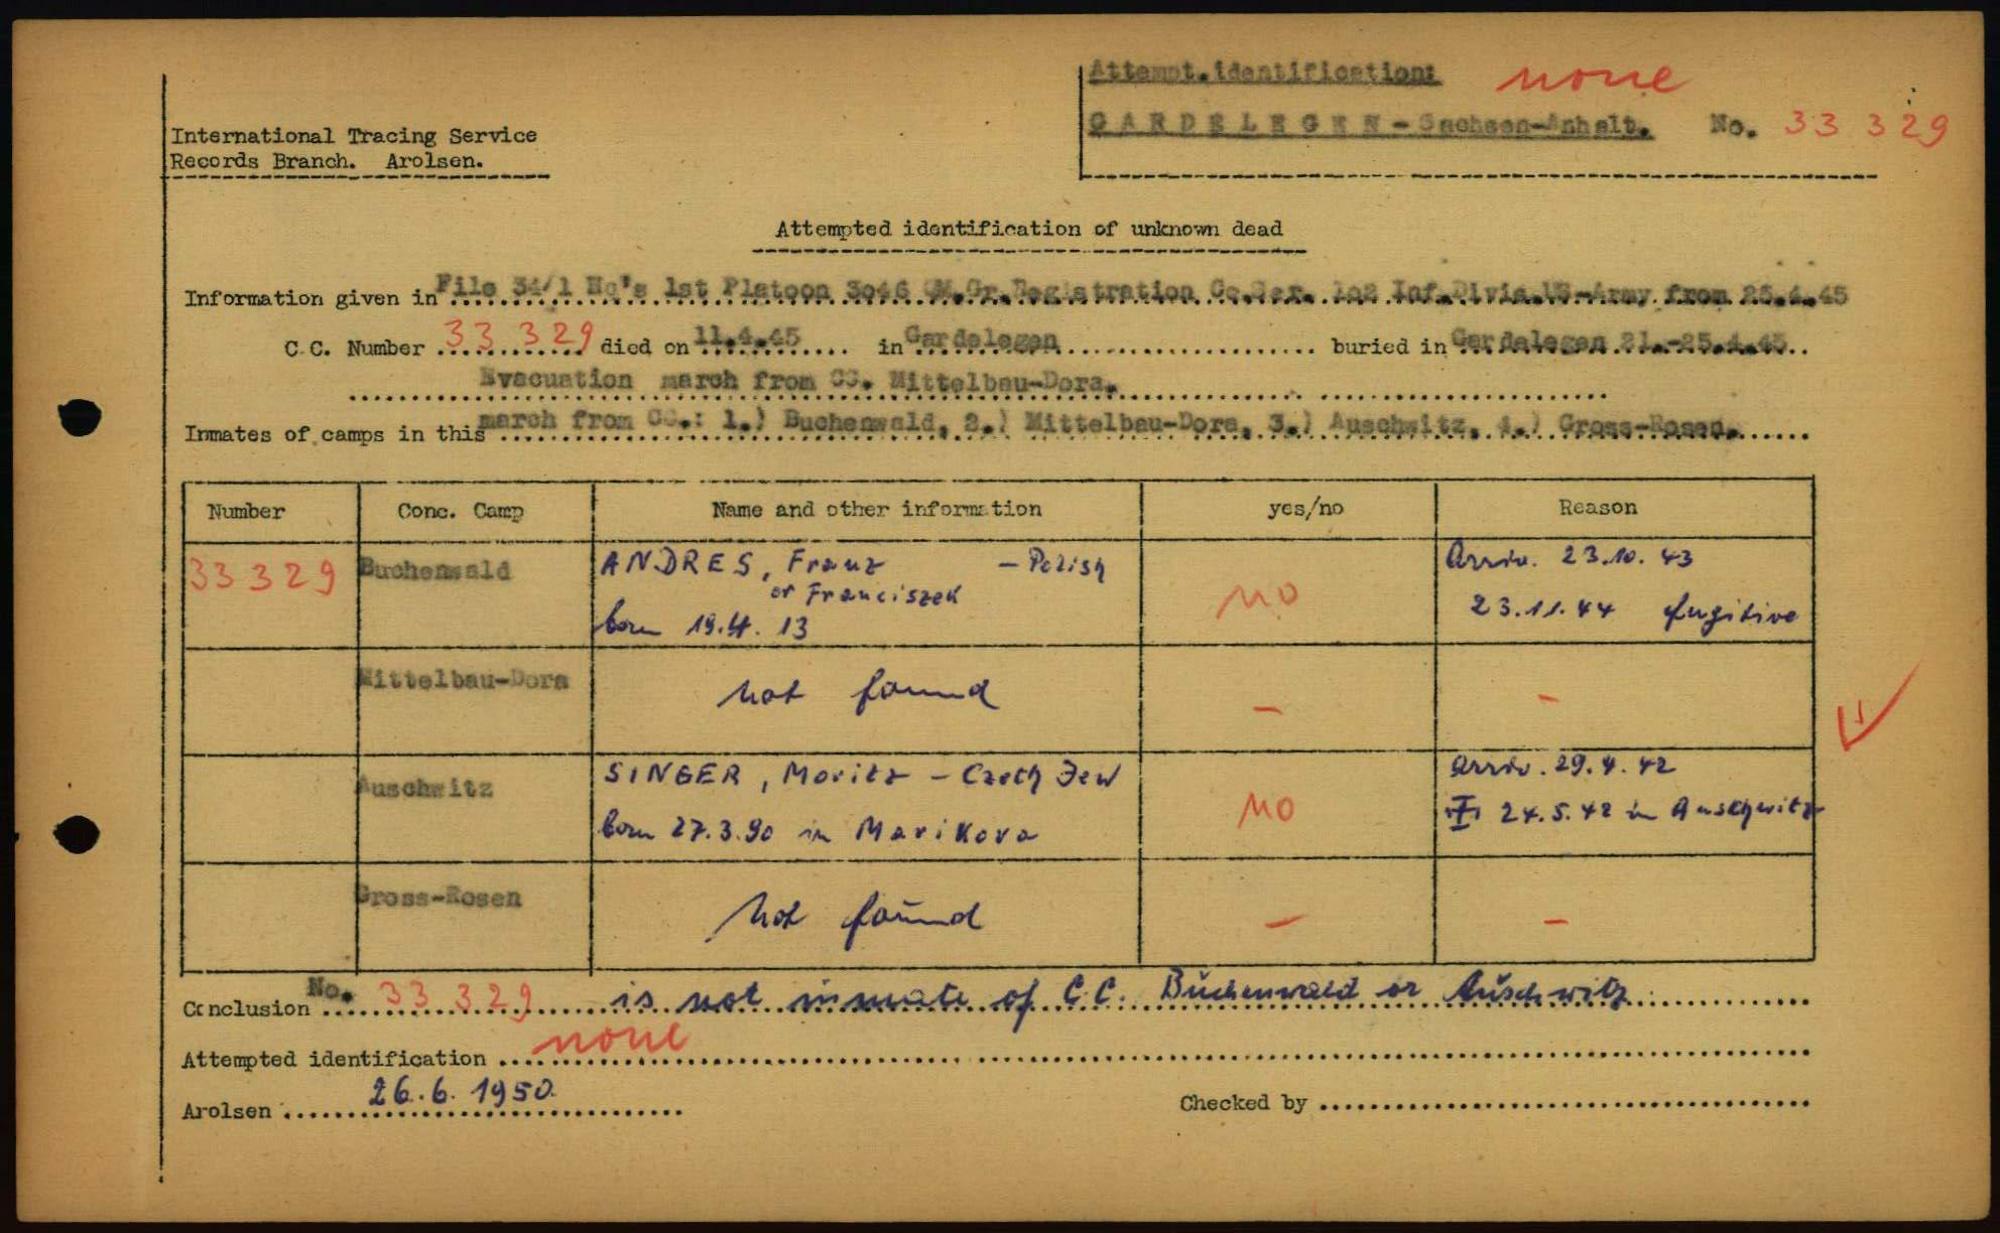 Attempt.identification: none
GARDELEGEN-Sachsen-Anhalt. No. 33 329
International Tracing Service
Records Branch. Arolsen.
Attempted identification of unknown dead
Information given in File 34/1 Hq's 1st Platoon 3046 QM.Gr.Registration Co.Ser. 102 Inf.Divis.US-Army from 25.4.45
C.C. Number 33 329 died on 11.4.45 in Gardelegen buried in Gardelegen 21.-25.4.45
Evacuation march from CC. Mittelbau-Dora.
Inmates of camps in this march from CC.: 1.) Buchenwald, 2.) Mittelbau-Dora, 3.) Auschwitz, 4.) Gross-Rosen.
Number Conc. Camp Name and other information yes/no Reason
33 329 Buchenwald ANDRES, Franz - Polish no Arriv. 23.10.43
or Franciszek
born 19.4.13 23.11.44 fugitive
Mittelbau-Dora not found - -
Auschwitz SINGER, Moritz - Czech Jew no Arriv. 29.4.42
born 27.3.90 in Marikova 24.5.42 in Auschwitz
Gross-Rosen not found - -
Conclusion No. 33 329 is not inmate of C.C. Buchenwald or Auschwitz
Attempted identification none
Arolsen 26.6.1950. Checked by